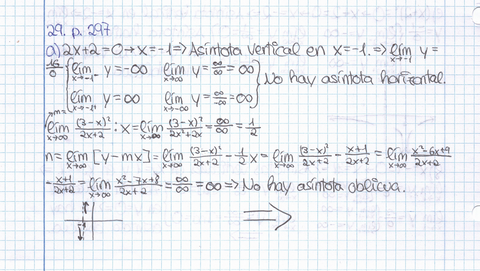 29. p. 297
a) 2x+2=0 → x=-1 ⇒ Asíntota vertical en x=-1. ⇒ lím x→-1 y =
16/0 { lím x→-1⁻ y=-∞ lím x→∞ y = ∞/∞ = ∞ } No hay asíntota horizontal.
{ lím x→-1⁺ y=∞ lím x→-∞ y = ∞/-∞ = -∞ }
→m= lím x→∞ (3-x)²/(2x+2) : x = lím x→∞ (3-x)²/(2x²+2x) = ∞/∞ = 1/2
n = lím x→∞ [y-mx] = lím x→∞ (3-x)²/(2x+2) - 1/2 x = lím x→∞ (3-x)²/(2x+2) - (x+1)/(2x+2) = lím x→∞ (x²-6x+9)/(2x+2)
- (x+1)/(2x+2) = lím x→∞ (x²-7x+8)/(2x+2) = ∞/∞ = ∞ ⇒ No hay asíntota oblicua.